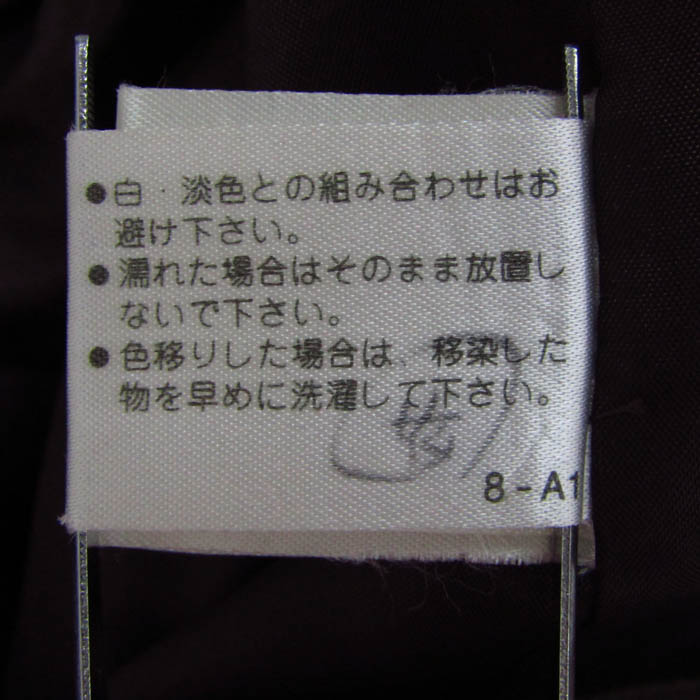 ● 白・淡色との組み合わせはお
避け下さい。
● 濡れた場合はそのまま放置し
ないで下さい。
● 色移りした場合は、移染した
物を早めに洗濯して下さい。
8-A1